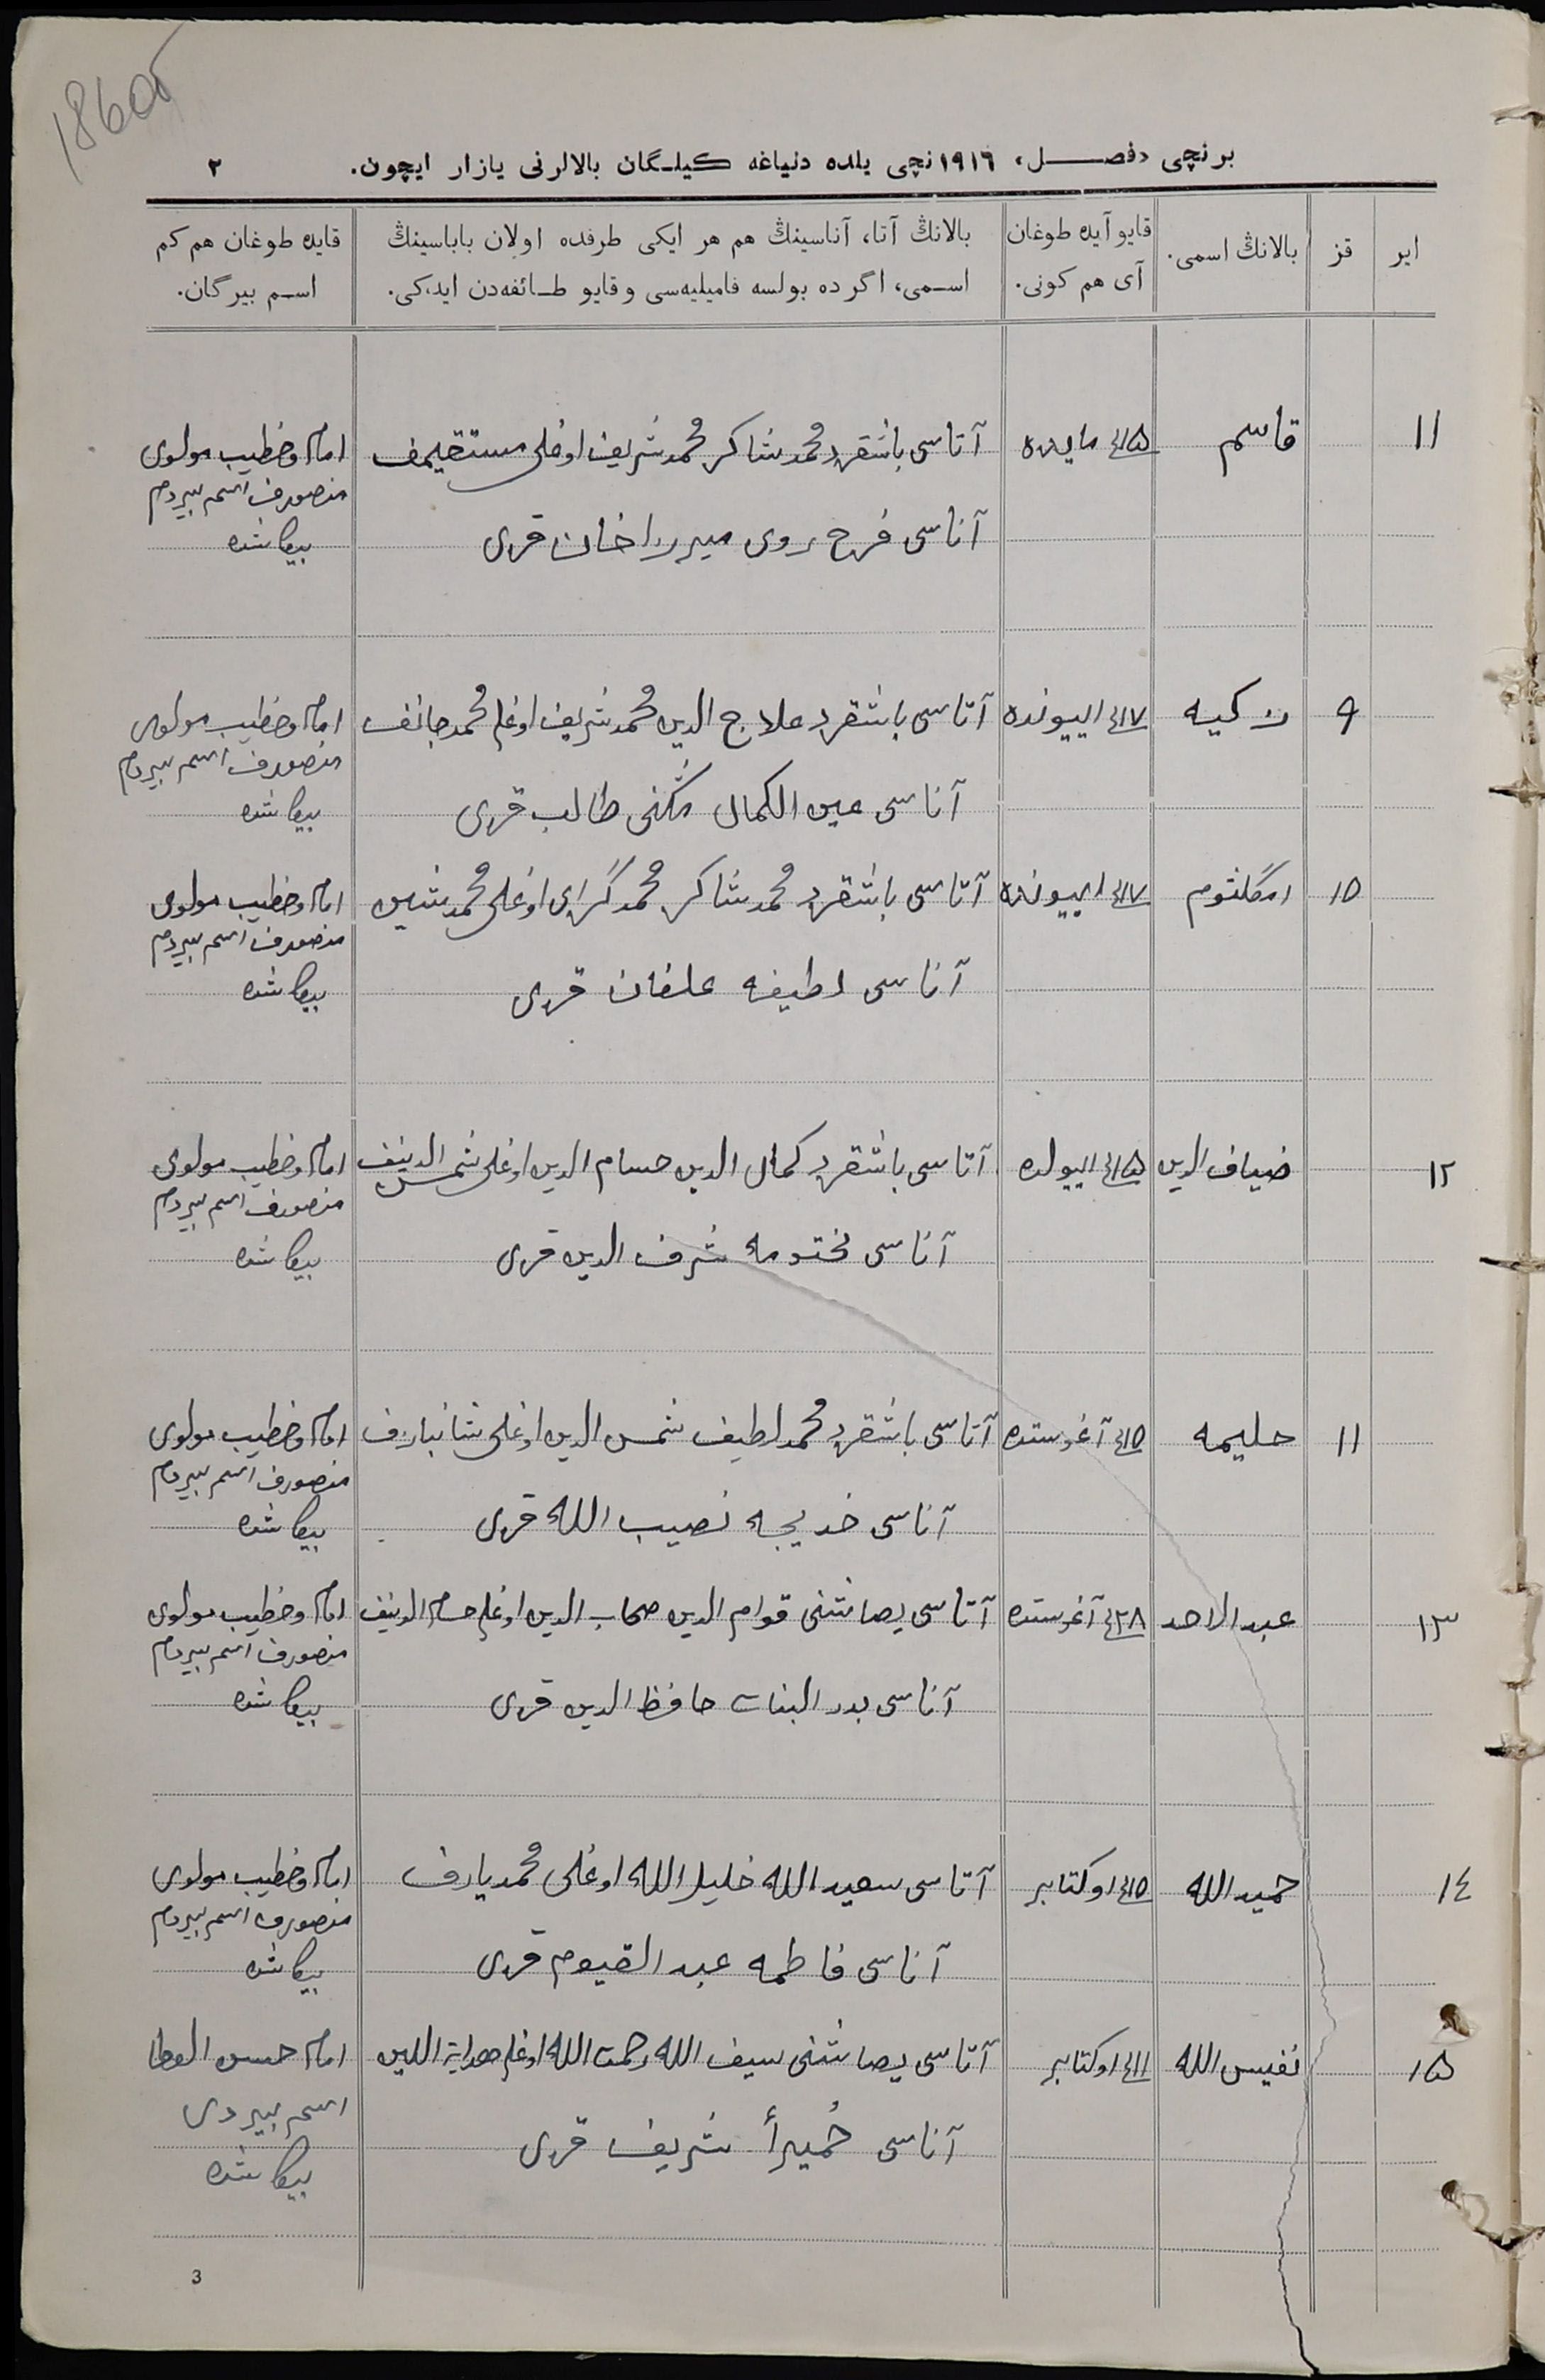 1860б
برنچی «فصل» ۱۹۱٦نچی یلده دنیاغه کیلگان بالالرنی یازار ایچون. ۲
ایر
قز
بالانڭ اسمی.
قایو آیده طوغان
آی هم کونی.
بالانڭ آتا، آناسینڭ هم هر ایکی طرفده اولان باباسینڭ
اسمی، اگرده بولسه فامیلیه‌سی و قایو طائفه‌دن ایدکی.
قایده طوغان هم کم
اسم بیرگان.
۱۱
قاسم
۱۵ مایده
آتاسی باشقرد محمدشاکر محمدشریف اوغلی مستقیمف
آناسی فرح روی میرزاخان قزی
امام وخطیب مولوی
منصورف اسم بیردم
۹
زکیه
۱۷ اییونده
آتاسی باشقرد علاج الدین محمدشریف اوغلی محمدجانف
آناسی عین الکمال طالب قزی
امام وخطیب مولوی
منصورف اسم بیردم
۱۰
ام‌کلثوم
۱۷ اییونده
آتاسی باشقرد محمدشاکر محمدگرای اوغلی
آناسی لطیفه قزی
امام وخطیب مولوی
منصورف اسم بیردم
۱۲
ضیاف الدین
۱۵ اییولده
آتاسی باشقرد کمال الدین حسام الدین اوغلی شمس الدینف
آناسی مختومه شرف الدین قزی
امام وخطیب مولوی
منصورف اسم بیردم
۱۱
حلیمه
۱۵ آغوستده
آتاسی باشقرد محمدلطیف شمس الدین اوغلی
آناسی خدیجه نصیب الله قزی
امام وخطیب مولوی
منصورف اسم بیردم
۱۳
عبد الاحد
۲۸ آغوستده
آتاسی قوام الدین صحاب الدین اوغلی حسام الدینف
آناسی بدر البنات حافظ الدین قزی
امام وخطیب مولوی
منصورف اسم بیردم
۱٤
حمید الله
۱۵ اوکتابر
آتاسی سعید الله خلیل الله اوغلی محمدیارف
آناسی فاطمه عبد القیوم قزی
امام وخطیب مولوی
منصورف اسم بیردم
۱۵
نفیس الله
۱۱ اوکتابر
آتاسی سیف الله رحمت الله اوغلی
آناسی حُمیرأ شریف قزی
امام حسن العطا
اسم بیردی
3